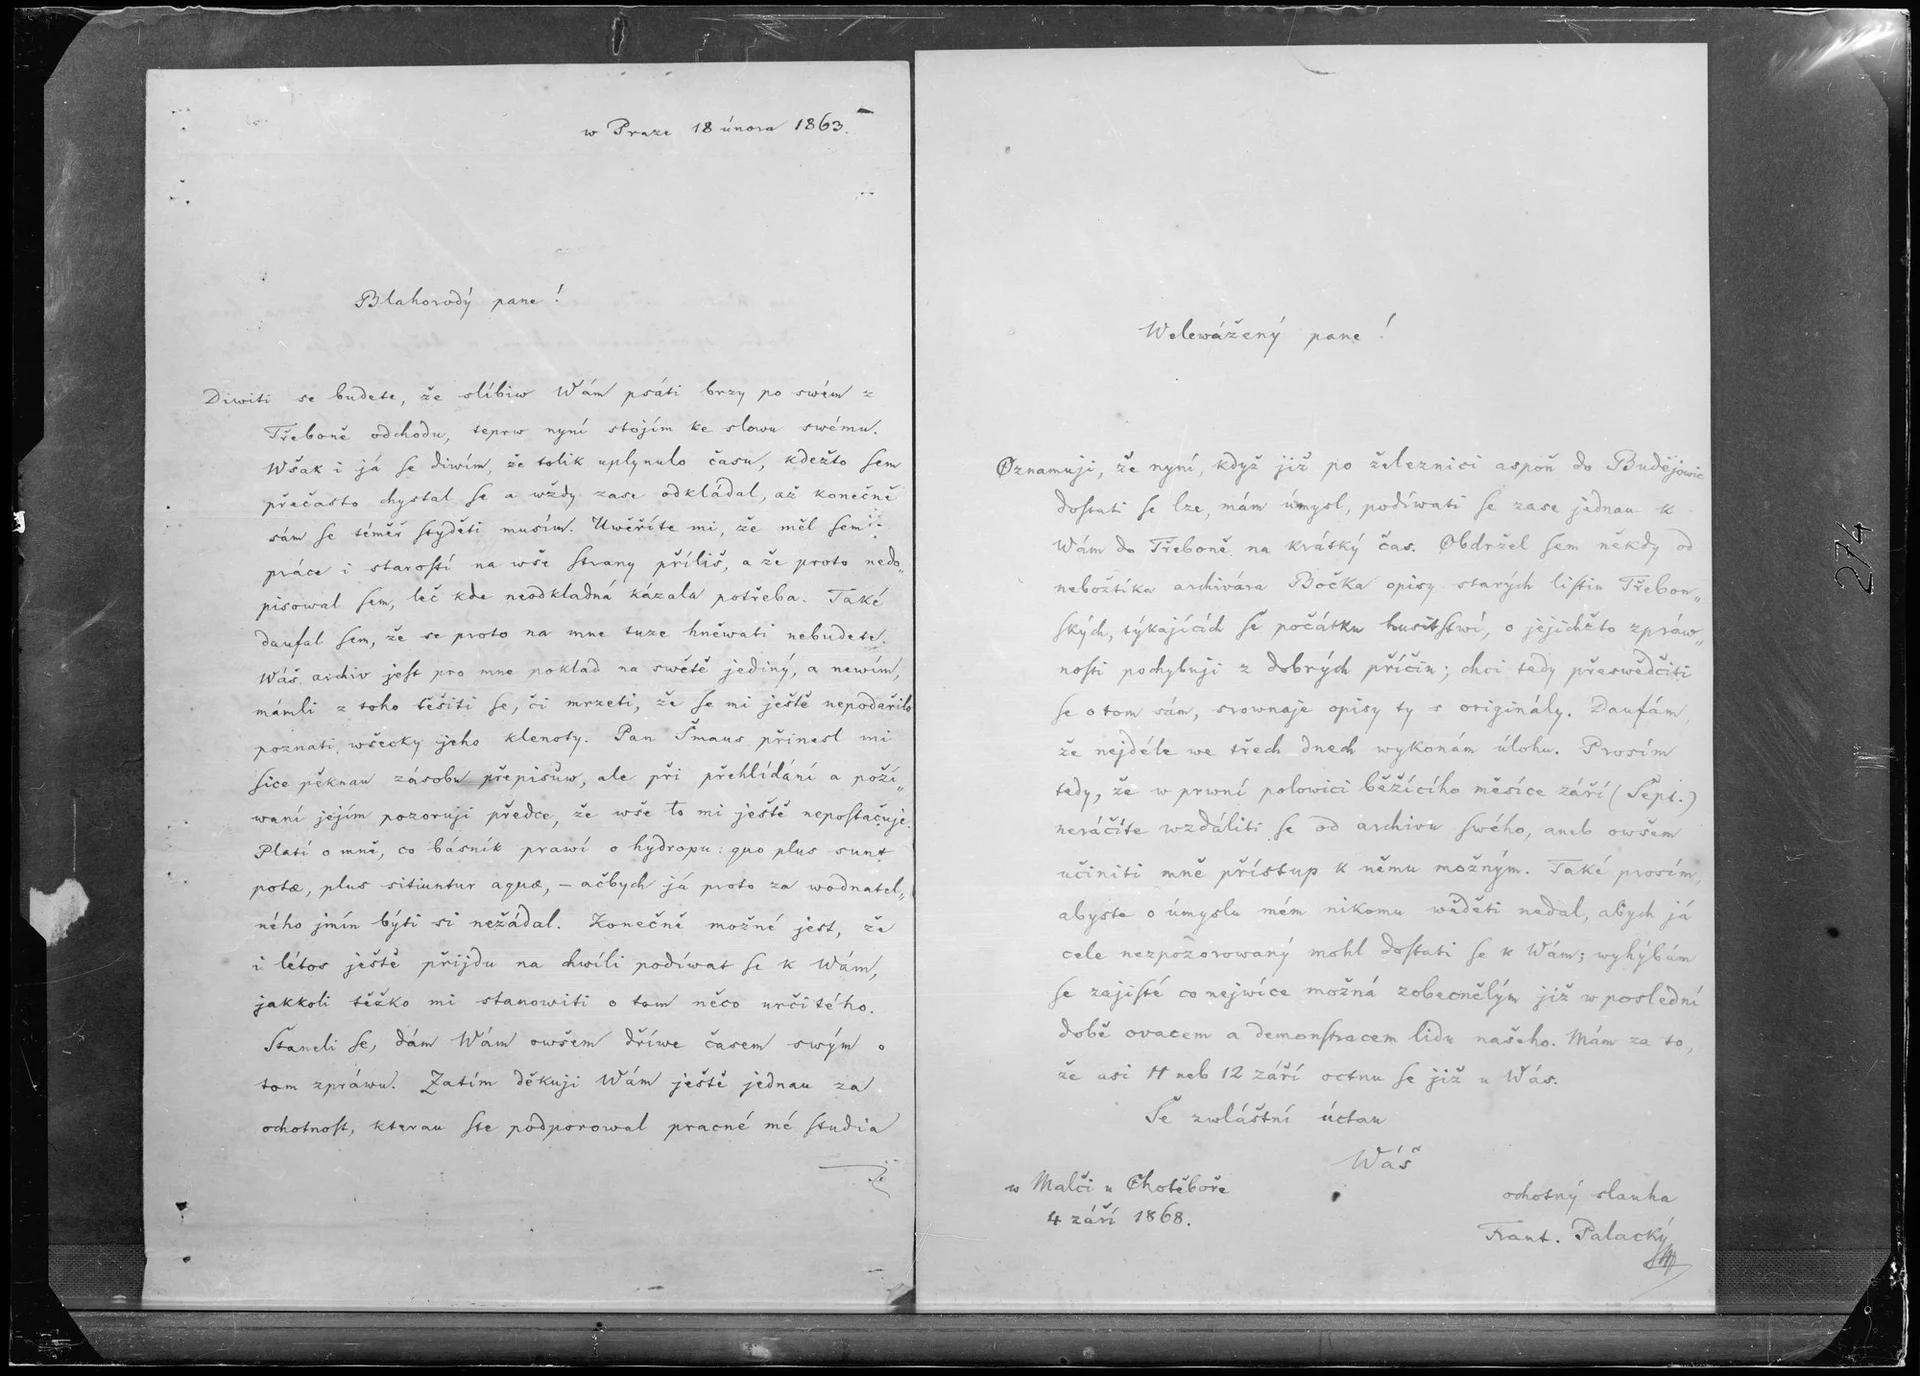 w Praze 18 února 1863.
Blahorodý pane!
Diwiti se budete, že slíbiw Wám psáti brzy po swém z
Třeboně odchodu, teprw nyní stojím ke slowu swému.
Wšak i já se diwím, že tolik uplynulo času, kdežto sem
přečasto chystal se a wždy zase odkládal, až konečně
sám se téměř styděti musím. Uwěříte mi, že měl sem
práce i starostí na wše strany příliš, a že proto nedo„
pisowal sem, leč kde neodkladná kázala potřeba. Také
daufal sem, že se proto na mne tuze hněwati nebudete.
Wáš archiv jest pro mne poklad na swětě jediný, a newím,
mámli z toho těšiti se, či mrzeti, že se mi ještě nepodařilo
poznati wšecky jeho klenoty. Pan Šmaus přinesl mi
sice pěknau zásobu přepisůw, ale při přehlídání a poží„
waní jejím pozoruji předce, že wše to mi ještě nepostačuje.
Platí o mně, co básník prawí o hydropu: quo plus sunt
potæ, plus sitiuntur aquæ, – ačbych já proto za wodnatel„
ného jmín býti si nežádal. Konečně možné jest, že
i létos ještě přijdu na chwíli podíwat se k Wám,
jakkoli těžko mi stanowiti o tom něco určitého.
Staneli se, dám Wám owšem dříwe časem swým o
tom zpráwu. Zatím děkuji Wám ještě jednau za
ochotnost, kterau ste podporowal pracné mé studia
Welewážený pane!
Oznamuji, že nyní, když již po železnici aspoň do Budějowic
dostati se lze, mám úmysl, podíwati se zase jednau k
Wám do Třeboně na krátký čas. Obdržel sem někdy od
nebožtíka archivára Bočka opisy starých listin Třebon„
ských, týkajících se počátku husitstwí, o jejichžto zpráw„
nosti pochybuji z dobrých příčin; chci tedy přeswědčiti
se o tom sám, srownaje opisy ty s originály. Daufám,
že nejdéle we třech dnech wykonám úlohu. Prosím
tedy, že w prwní polowici běžícího měsíce září (Sept.)
neráčíte wzdáliti se od archivu swého, aneb owšem
učiniti mně přístup k němu možným. Také prosím,
abyste o úmyslu mém nikomu wěděti nedal, abych já
cele nezpozorowaný mohl dostati se k Wám; wyhýbám
se zajisté co nejwíce možná zobecnělým již w poslední
době ovacem a demonstracem lidu našeho. Mám za to,
že asi 11 neb 12 září octnu se již u Wás.
Se zwláštní úctau
Wáš
w Malči u Chotěboře
4 září 1868.
ochotný slauha
Frant. Palacký
274